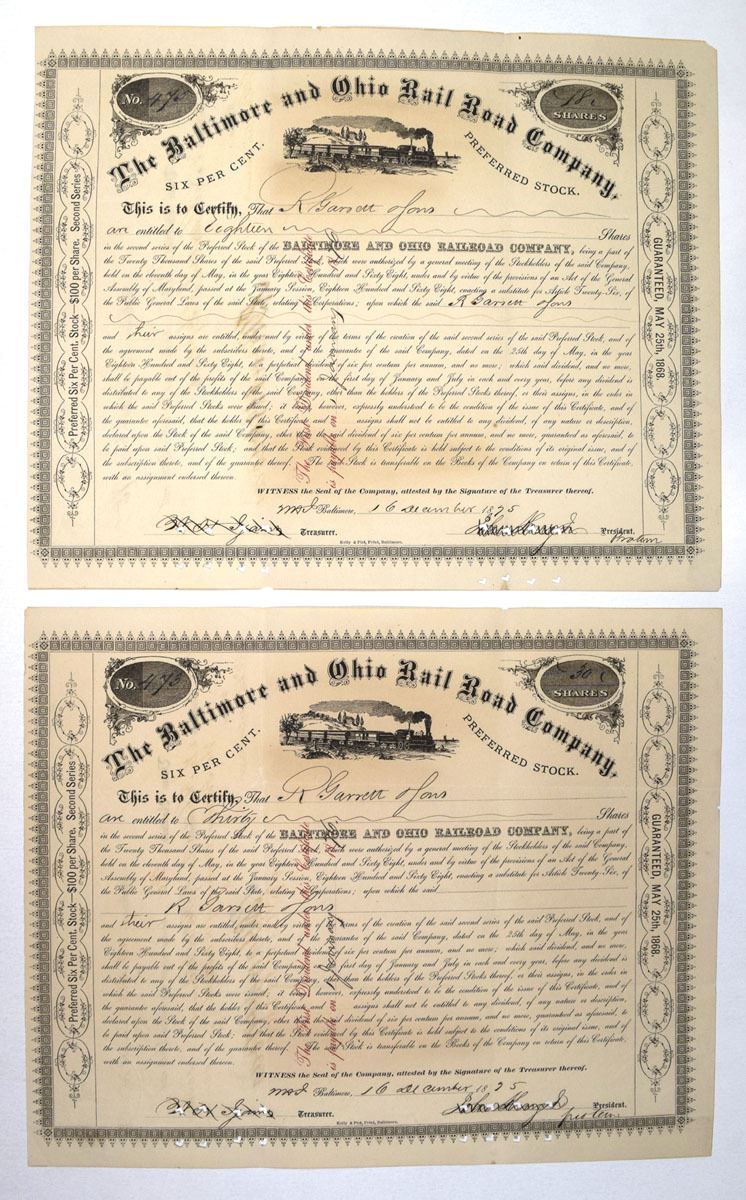 No. 472
The Baltimore and Ohio Rail Road Company.
18
SHARES
SIX PER CENT.
PREFERRED STOCK.
This is to Certify, That R Garrett & Sons
are entitled to Eighteen Shares
in the second series of the Preferred Stock of the BALTIMORE AND OHIO RAILROAD COMPANY, being a part of
the Twenty Thousand Shares of the said Preferred Stock, were authorized by a general meeting of the Stockholders of the said Company,
held on the eleventh day of May, in the year Eighteen Hundred and Sixty Eight, under and by virtue of the provisions of an Act of the General
Assembly of Maryland, passed at the January Session, Eighteen Hundred and Sixty Eight, enacting a substitute for Article Twenty-Six, of
the Public General Laws of the said State, relating to Corporations; upon which the said R Garrett & Sons
and their assigns are entitled, under and by virtue of the terms of the creation of the said second series of the said Preferred Stock, and of
the agreement made by the subscribers thereto, and of the guarantee of the said Company, dated on the 25th day of May, in the year
Eighteen Hundred and Sixty Eight, to a perpetual dividend of six per centum per annum, and no more; which said dividend, and no more,
shall be payable out of the profits of the said Company, on the first day of January and July in each and every year, before any dividend is
distributed to any of the Stockholders of the said Company, other than the holders of the Preferred Stocks thereof, or their assigns, in the order in
which the said Preferred Stocks were issued; it being, however, expressly understood to be the condition of the issue of this Certificate, and of
the guarantee aforesaid, that the holder of this Certificate and assigns shall not be entitled to any dividend, of any nature or description,
declared upon the Stock of the said Company, other than the said dividend of six per centum per annum, and no more, guaranteed as aforesaid, to
be paid upon said Preferred Stock; and that the Stock evidenced by this Certificate is held subject to the conditions of its original issue, and of
the subscription thereto, and of the guarantee thereof. The said Stock is transferable on the Books of the Company on return of this Certificate,
with an assignment endorsed thereon.
WITNESS the Seal of the Company, attested by the Signature of the Treasurer thereof.
Baltimore, 16 December 1895
Treasurer.
President.
Protem
Kelly & Piet, Print, Baltimore.
Preferred Six Per Cent. Stock—$100 per Share. Second Series
GUARANTEED, MAY 25th, 1868.
The First Dividend under this Certificate
is payable on 1 January
No. 473
The Baltimore and Ohio Rail Road Company.
30
SHARES
SIX PER CENT.
PREFERRED STOCK.
This is to Certify, That R Garrett & Sons
are entitled to Thirty Shares
in the second series of the Preferred Stock of the BALTIMORE AND OHIO RAILROAD COMPANY, being a part of
the Twenty Thousand Shares of the said Preferred Stock, were authorized by a general meeting of the Stockholders of the said Company,
held on the eleventh day of May, in the year Eighteen Hundred and Sixty Eight, under and by virtue of the provisions of an Act of the General
Assembly of Maryland, passed at the January Session, Eighteen Hundred and Sixty Eight, enacting a substitute for Article Twenty-Six, of
the Public General Laws of the said State, relating to Corporations; upon which the said
R Garrett & Sons
and their assigns are entitled, under and by virtue of the terms of the creation of the said second series of the said Preferred Stock, and of
the agreement made by the subscribers thereto, and of the guarantee of the said Company, dated on the 25th day of May, in the year
Eighteen Hundred and Sixty Eight, to a perpetual dividend of six per centum per annum, and no more; which said dividend, and no more,
shall be payable out of the profits of the said Company, on the first day of January and July in each and every year, before any dividend is
distributed to any of the Stockholders of the said Company, other than the holders of the Preferred Stocks thereof, or their assigns, in the order in
which the said Preferred Stocks were issued; it being, however, expressly understood to be the condition of the issue of this Certificate, and of
the guarantee aforesaid, that the holder of this Certificate and assigns shall not be entitled to any dividend, of any nature or description,
declared upon the Stock of the said Company, other than the said dividend of six per centum per annum, and no more, guaranteed as aforesaid, to
be paid upon said Preferred Stock; and that the Stock evidenced by this Certificate is held subject to the conditions of its original issue, and of
the subscription thereto, and of the guarantee thereof. The said Stock is transferable on the Books of the Company on return of this Certificate,
with an assignment endorsed thereon.
WITNESS the Seal of the Company, attested by the Signature of the Treasurer thereof.
Baltimore, 16 December 1895
Treasurer.
President.
protem
Kelly & Piet, Print, Baltimore.
Preferred Six Per Cent. Stock—$100 per Share. Second Series
GUARANTEED, MAY 25th, 1868.
The First Dividend under this Certificate
is payable on 1 January